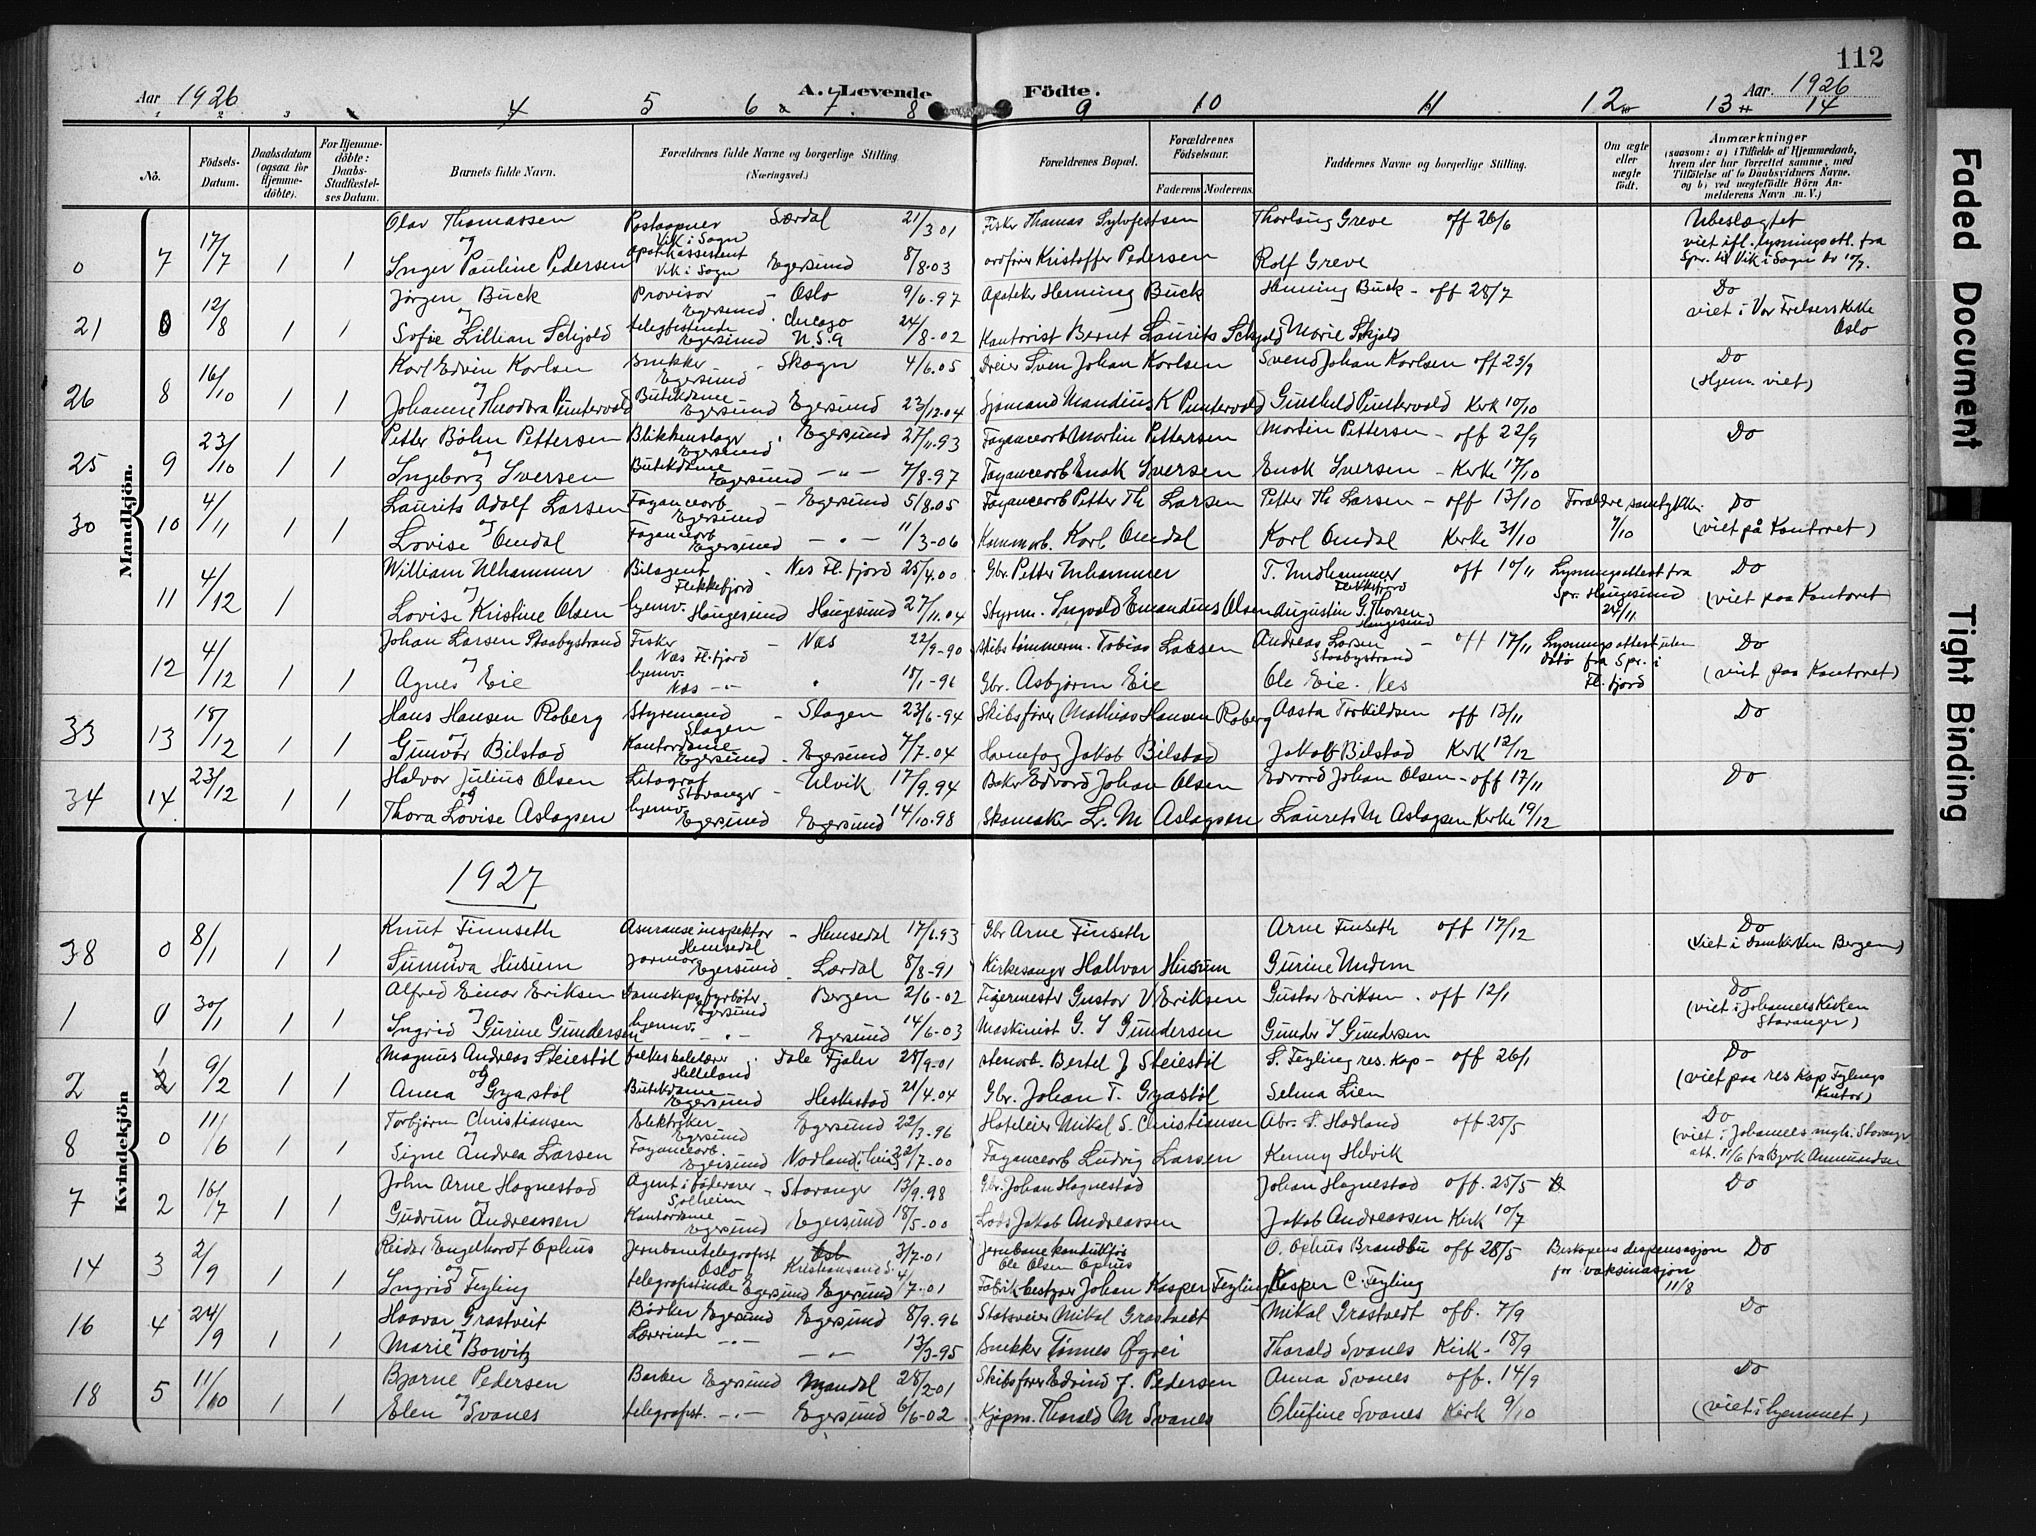 112
Aar 1926 A. Levende Födte. Aar. 1926
4 5 6 7. 8 9 10 11 12 13 14
No.
Födsels-Datum.
Daabsdatum (ogsaa for Hjemme-döbte).
For Hjemme-döbte: Daabs-Stadfæstel-ses Datum.
Barnets fulde Navn.
Forældrenes fulde Navne og borgerlige Stilling
(Næringsvei.)
Forældrenes Bopæl.
Forældrenes Födselsaar.
Faderens Moderens.
Faddernes Navne og borgerlige Stilling.
Om ægte eller uægte födt.
Anmærkninger
(saasom: a) i Tilfælde af Hjemmedaab, hvem der har forrettet samme, med Tilföielse af to Daabsvidners Navne, og b) ved uægtefödte Börn Anmelderens Navn m. V.)
Mandkjön.
Olav Thomassen Postaapner Vik i Sogn Særdal 21/3 01 Fisker Thomas Sylvfestsen Thorlaug Greve off 26/6 Ubeslægtet
0 7 17/7 1 1 og viet ifl. lysningsatt. fra
Inger Pauline Pedersen Apothekassistent Vik i Sogn Egersund 8/8-03 ordfører Kristoffer Pedersen Rolf Greve Spr. til Vik i Sogn av 10/7.
Jørgen Buck Provisor Egersund - Oslo 9/6-97 Apoteker Henning Buck Henning Buck - off 28/7 Do
21 12/8 1 1 og viet i Vor Frelsers Kirke Oslo
Sofie Lillian Schjold telegfistinde Egersund Chicago U.S.A 24/8-02 Kontorist Bernt Laurits Schjold Marie Skjold
Karl Edvin Karlsen Snekker Egersund - Skogn 4/6.05 Dreier Sven Johan Karlsen Svend Johan Karlsen off 25/9 Do
26 8 16/10 1 1 og (Hjem. viet)
Johanne Theodora Puntervold Butikdame Egersund Egersund 23/12.04 Sjømand Mandius K Puntervold Gunhild Puntervold Kerk 10/10
Petter Bøhn Pettersen Blikkenslager Egersund Egersund 27/11.93 Fayancearb Martin Pettersen Martin Pettersen - off 22/9 Do
25 9 23/10 1 1 og
Ingeborg Iversen Butikdame Egersund - " - 7/8-97 Fayancearb Enok Iversen Enok Iversen - Kerke 17/10
Laurits Adolf Larsen Fayancearb Egersund - Egersund 5/8.05 Fayancearb Petter Th Larsen Petter Th Larsen - off 13/10 Forældre samtykke 9/10 Do
30 10 4/11 1 1 og (viet på Kontoret)
Lovise Omdal Fayancearb Egersund - " - 11/3-06 Kommarb. Karl Omdal Karl Omdal Kerke 31/10
William Ulhammer Bilagent Flekkefjord - Nes Fl.fjord 25/4.00 Gbr. Petter Unhammer T. Undhammer Flekkefjord off 10/11 Lysningsattest fra Spr. Haugesund 24/11 Do
11 4/12 1 og (viet paa Kontoret
Lovise Kristine Olsen hjemv. Haugesund Haugesund 27/11.04 Styrm. Ingvald Emandius Olsen Augustin G. Thorsen Haugesund
Johan Larsen Staabystrand Fisker Næs Fl.fjord - Næs 22/9-90 skibstømmerm. Tobias Larsen Andreas Larsen Staabystrand - off 17/11 Lysningsattest uten dato fra Spr. i Fl.fjord Do
12 4/12 1 1 og (viet paa Kontoret)
Agnes Eie hjemv. Næs - " - 18/1-96 Gbr. Asbjørn Eie Ole Eie. Nes
Hans Hansen Roberg Styremand Slagen - Slagen 23/6-94 Skibsfører Mathias Hansen Roberg Aasta Torkildsen off 13/11 Do
33 13 18/12 1 1 og
Gunvor Bilstad Kontordame Egersund - Egersund 7/7.04 Havnefog Jakob Bilstad Jakob Bilstad Kerk 12/12
Halvor Julius Olsen Litograf Stavanger - Ulvik 17/9.94 Baker Edvard Johan Olsen Edvard Johan Olsen - off 17/11 Do
34 14 23/12 1 1 og
Thora Lovise Aslagsen hjemv. Egersund Egersund 14/10.98 Skomaker L. M Aslagsen Laurets M Aslagsen Kerke 19/12
1927
Kvindekjön
Knut Finnseth Assuranseinspektør Hemsedal - Hemsedal 17/1.93 Gbr Arne Finseth Arne Finseth off 17/12 Do
38 0 8/1 1 1 og (viet i Domkirken Bergen)
Sunniva Husum Jormor Egersund - Lærdal 8/8-91 Kirkesanger Hallvar Husum Gurine Undem
Alfred Einar Eriksen Damskipsfyrbøter Egersund Bergen 2/6-02 Tigermester Gustav V Eriksen Gustav Eriksen. off 12/1 Do
1 0 30/1 1 1 og (viet i Johannes Kirken Stavanger)
Ingrid Gurine Gundersen hjemv. - " - Egersund 14/6-03 Maskinist G. I Gundersen Gunder I Gundersen
Magnus Andreas Steiestøl folkeskolelærer Helleland . Dale Fjaler 28/9-01 stenarb. Bertel J Steiestøl S. Feyling res. kap - off 26/1 Do
2 1 9/2 1 1 og (viet paa res Kap Fylings Kontor)
Anna Gyastøl Butikdame Egersund Heskestad 21/4.04 Gbr. Johan T. Gyastøl Selma Lien
Torbjørn Christiansen Elektriker Egersund Egersund 22/3-96 Hoteleier Mikal S. Christiansen Abr. S. Hadland off 25/5 Do
8 0 11/6 1 1 og (viet i Johannes mgh. Stavanger att. 11/6 fra Bjerk Aamundsen
Signe Andrea Larsen Fayancearb. Egersund Nodland 22/7-00 Fayancearb Ludvig Larsen Kenny Helvik
John Arne Hognestad Agent i fødevarer Solheim - Stavanger 13/9.98 Gbr. Johan Hognestad Johan Hognestad off. 25/5 Do
7 2 16/7 1 1 og
Gudrun Andreassen Kontordame Egersund Egersund 18/5-00 Lods Jakob Andreassen Jakob Andreassen Kirk 10/7
Reidar Engelhardt Ophus Jernbanetelegrafist Oslo Kristiansand S. 3/7-01 Jernbanekonduktør Ole Olsen Ophus O. Ophus Brandbu off 28/5 Biskopens dispensasjon for vaksinasjon 11/8 Do
14 3 2/9 1 1 og
Ingrid Feyling telegrafistinde Egersund Egersund 4/7-01 Fabrikbestyrer Johan Kasper Feyling Kasper C. Feyling
Haavar Grastveit Bødker Egersund Egersund 8/9.96 Stadsveier Mikal Grastvedt Mikal Grastvedt off. 7/9 Do
16 4 24/9 1 1 og
Marie Bowitz Lærerinde - " - - " - 13/3-95 Snekker Tønnes Øgrei Thorald Svanes Kirk - 18/9
Bjarne Pedersen Barber Egersund Mandal 28/2-01 Skibsfører Edvind J. Pedersen Anna Svanes off. 14/9 Do
18 5 11/10 1 1 og (viet i hjemmet)
Elen Svanes telegrafist. - " - Egersund 6/6-02 Kjøpm. Thorald M Svanes Olufine Svanes Kirk 9/10
Faded Document
Tight Binding